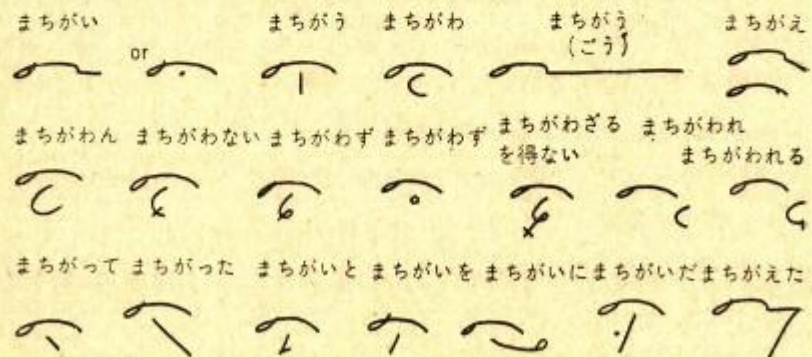 まちがい or まちがう まちがわ まちがう まちがえ
(ごう)
まちがわん まちがわない まちがわず まちがわず まちがわざる まちがわれ
を得ない まちがわれる
まちがって まちがった まちがいと まちがいを まちがいに まちがいだ まちがえた